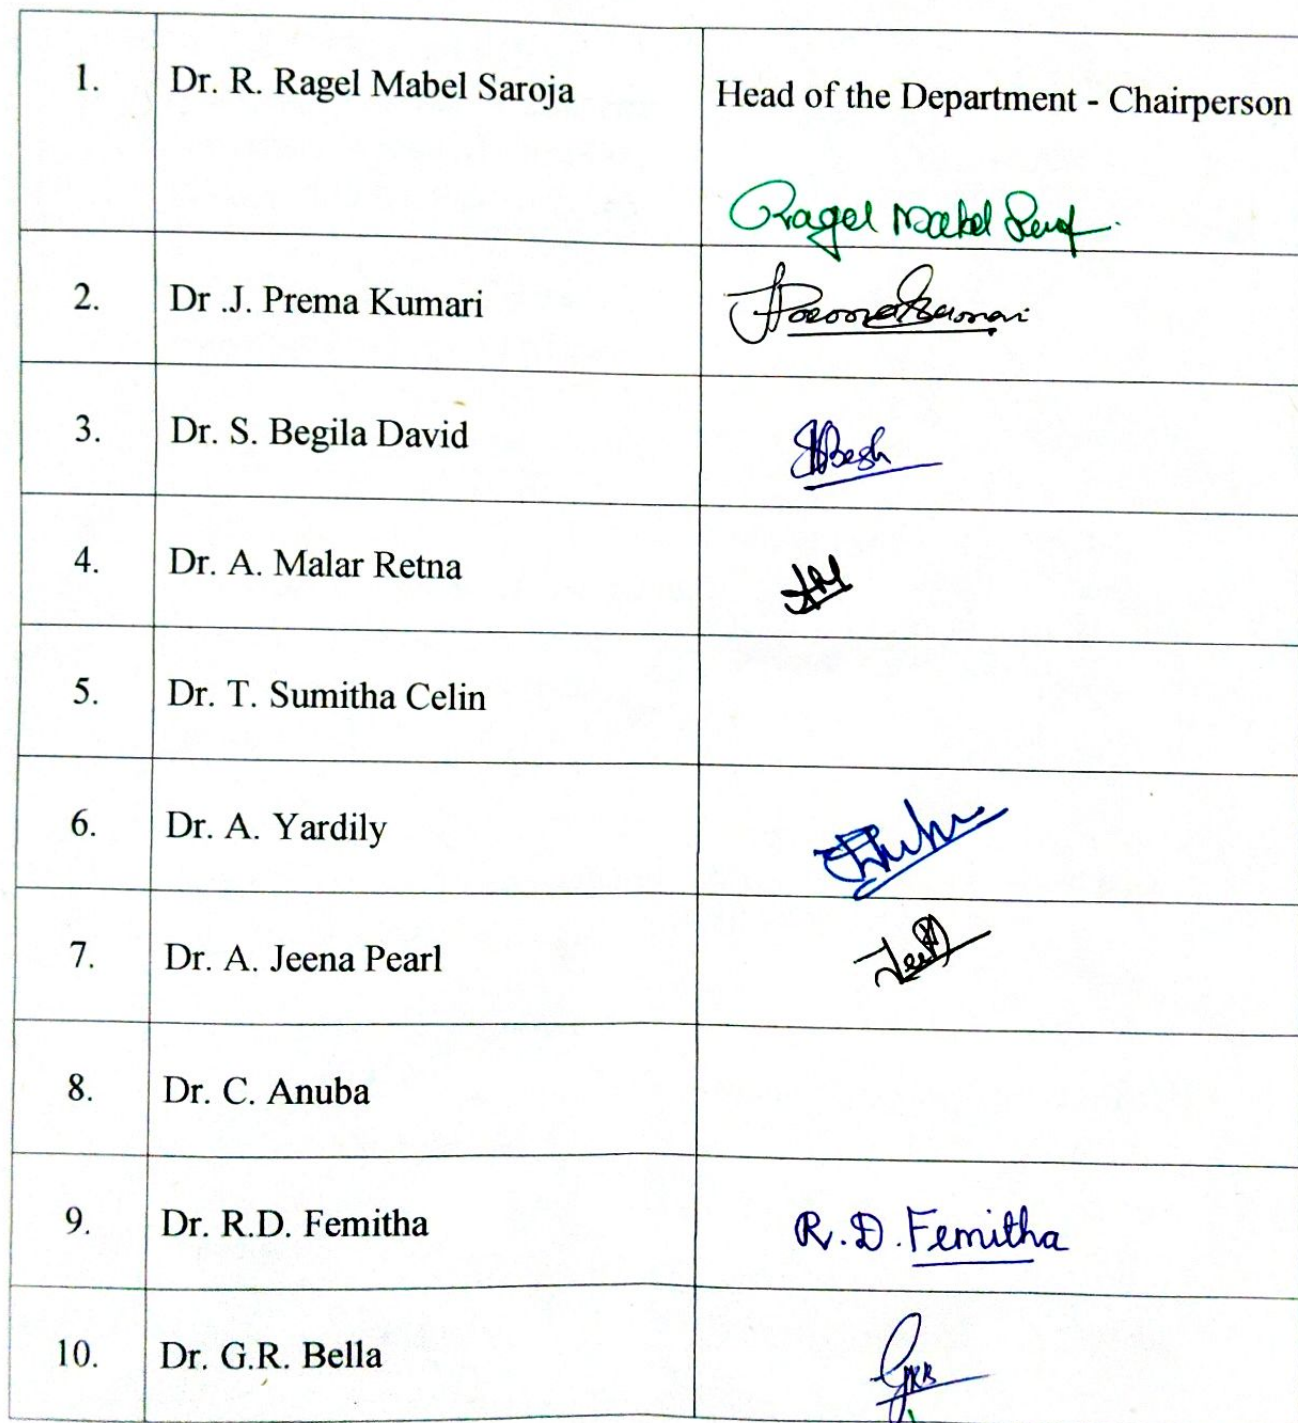 1. Dr. R. Ragel Mabel Saroja Head of the Department - Chairperson
Ragel Mabel
2. Dr .J. Prema Kumari
J Prema Kumari
3. Dr. S. Begila David
4. Dr. A. Malar Retna
5. Dr. T. Sumitha Celin
6. Dr. A. Yardily
7. Dr. A. Jeena Pearl
8. Dr. C. Anuba
9. Dr. R.D. Femitha R.D. Femitha
10. Dr. G.R. Bella